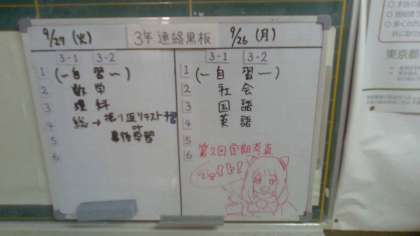 9/27 (火)
3年連絡黒板
9/26 (月)
3-1 3-2
1 (ー自習ー)
2 数学
3 理科
4 総→振り返りテスト習
5
6
3-1 3-2
1 (ー自習ー)
2 社会
3 国語
4 英語
5
6
第2回定期考査
東京都